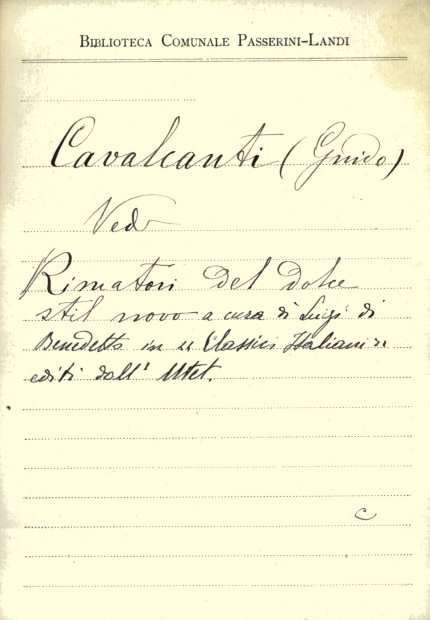 BIBLIOTECA COMUNALE PASSERINI-LANDI
Cavalcanti (Guido)
Vedi
Rimatori del dolce
stil novo a cura di Luigi di
Benedetto in "Classici Italiani"
editi dall' Utet.
C